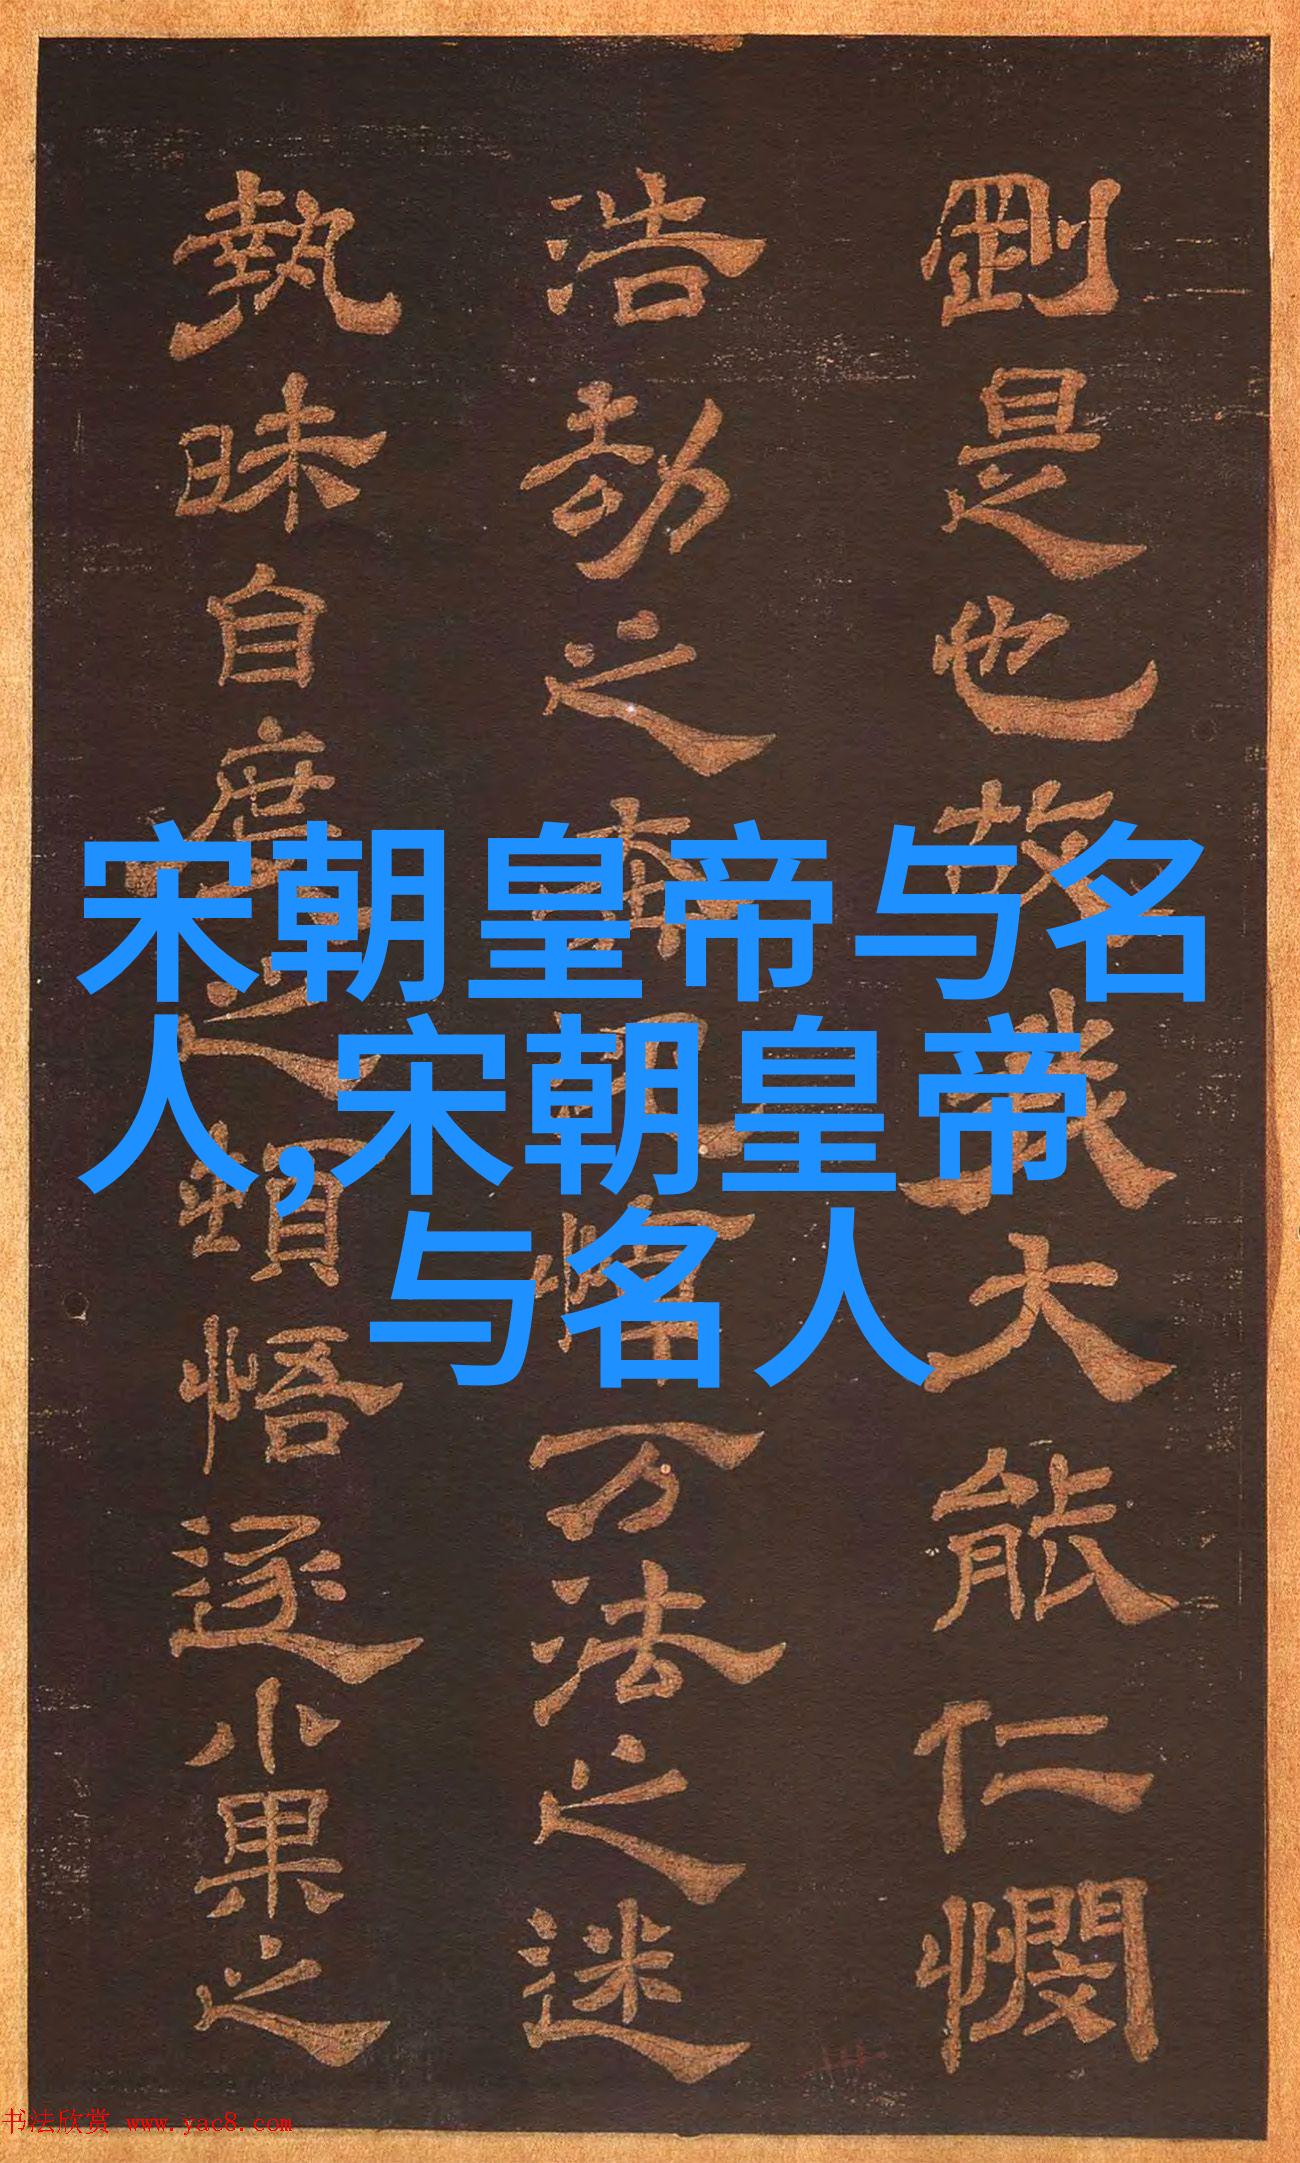 剛是也故我大能仁憫
浩劫之
万法之迷
執昧自度之頓悟逐小果之
宋朝皇帝与名
人,宋朝皇帝
与名人
书法欣赏 www.yac8.com